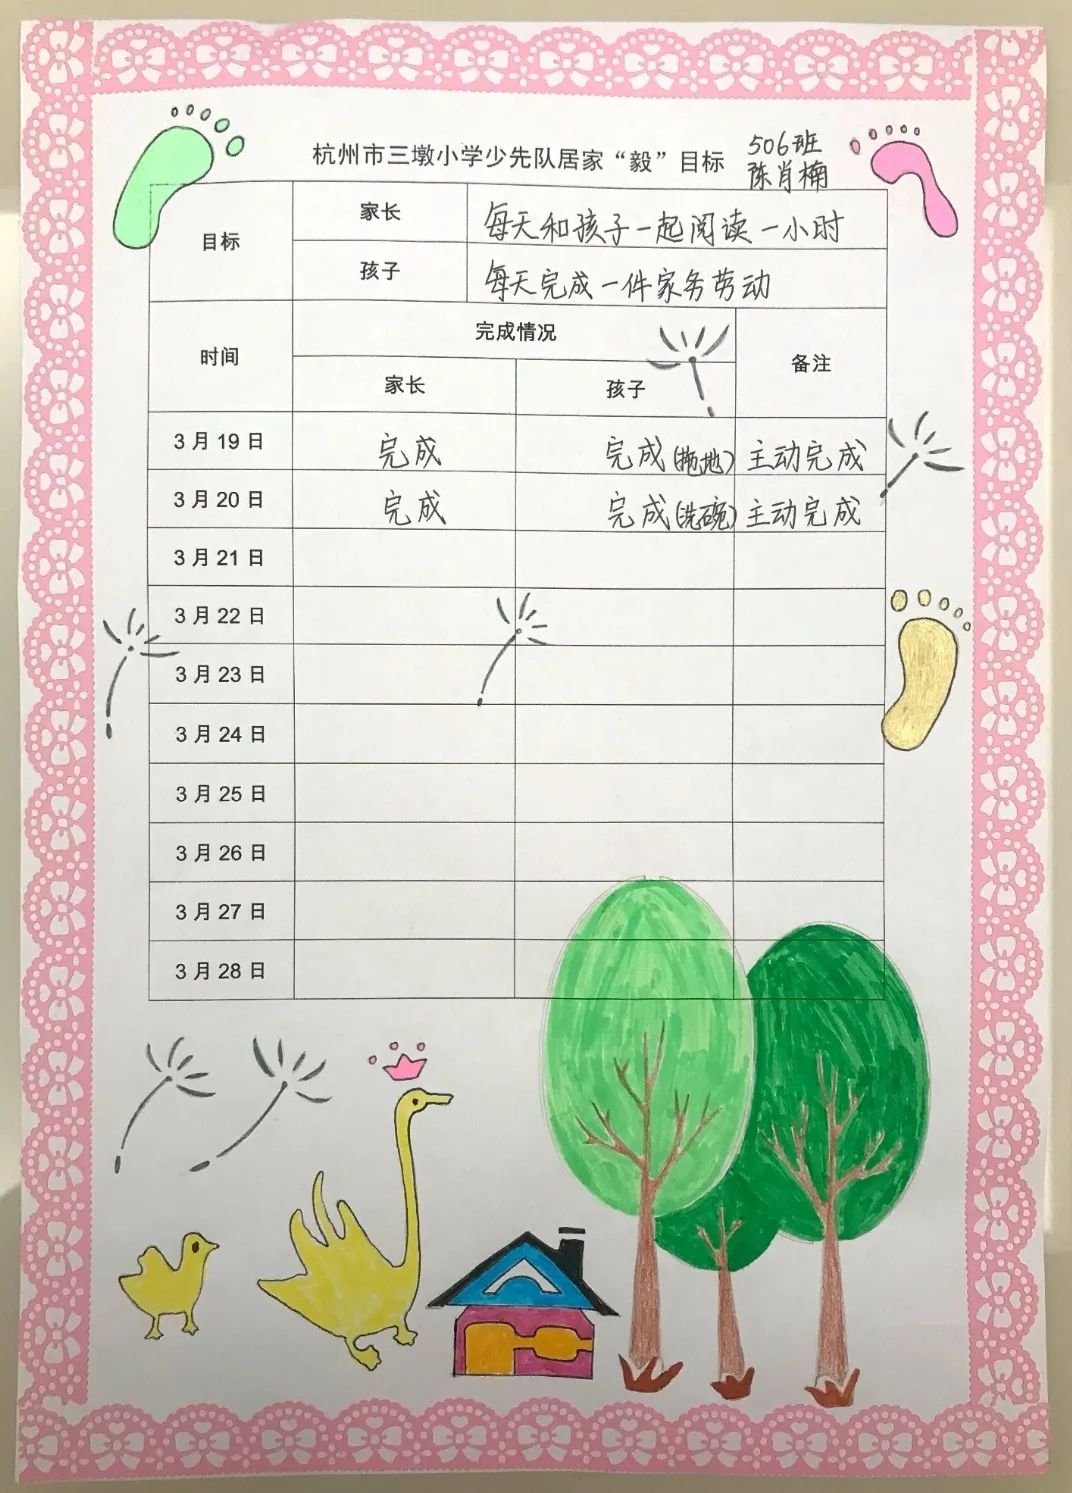 杭州市三墩小学少先队居家“毅”目标
506班
陈肖楠
目标
家长
每天和孩子一起阅读一小时
孩子
每天完成一件家务劳动
时间
完成情况
备注
家长
孩子
3月19日
完成
完成(拖地)
主动完成
3月20日
完成
完成(洗碗)
主动完成
3月21日
3月22日
3月23日
3月24日
3月25日
3月26日
3月27日
3月28日